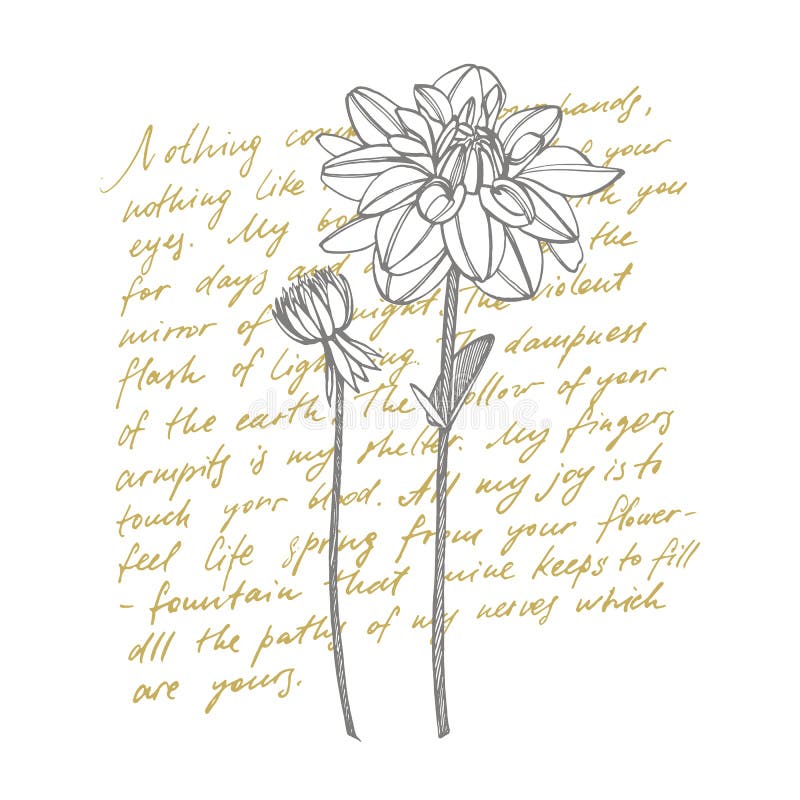 Nothing hands,
nothing like of your
eyes. My you
for days and the
mirror of night. The violent
flash of dampness
of the earth. The of your
armpits is my shelter. My fingers
touch your blood. All my joy is to
feel life spring from your flower-
-fountain that mine keeps to fill
all the paths of my nerves which
are yours.
dreamstime